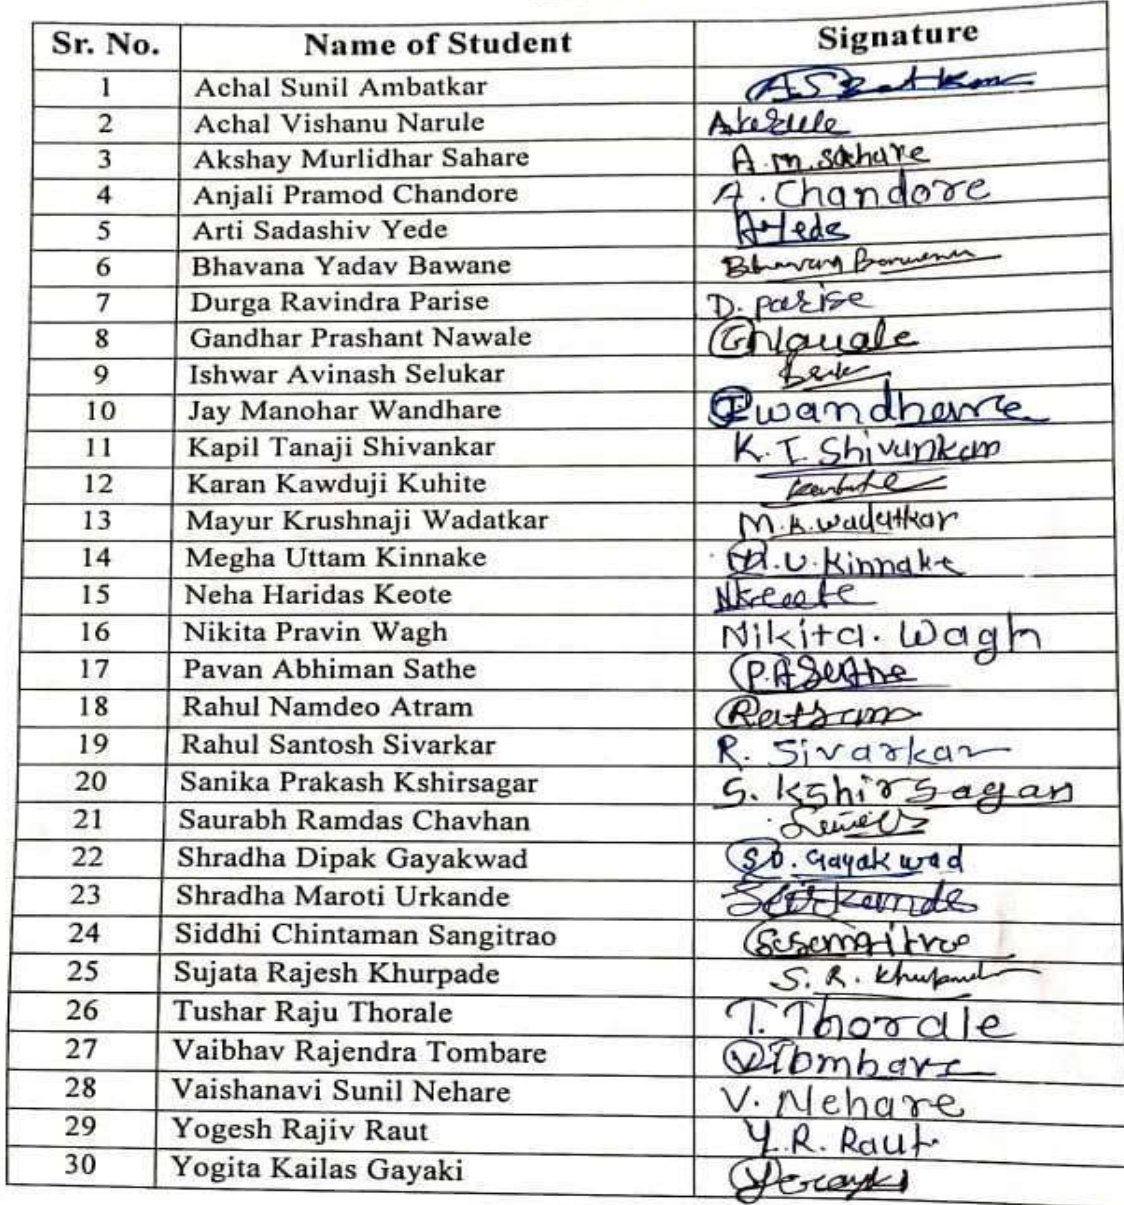 Sr. No. Name of Student Signature
1 Achal Sunil Ambatkar
2 Achal Vishanu Narule
3 Akshay Murlidhar Sahare A.m.sahare
4 Anjali Pramod Chandore A. Chandore
5 Arti Sadashiv Yede
6 Bhavana Yadav Bawane
7 Durga Ravindra Parise D. parise
8 Gandhar Prashant Nawale
9 Ishwar Avinash Selukar
10 Jay Manohar Wandhare
11 Kapil Tanaji Shivankar K.T. Shivankar
12 Karan Kawduji Kuhite
13 Mayur Krushnaji Wadatkar M.K.wadatkar
14 Megha Uttam Kinnake M.U.Kinnake
15 Neha Haridas Keote
16 Nikita Pravin Wagh Nikita. Wagh
17 Pavan Abhiman Sathe P.A Sathe
18 Rahul Namdeo Atram
19 Rahul Santosh Sivarkar R. Sivarkar
20 Sanika Prakash Kshirsagar S. Kshirsagar
21 Saurabh Ramdas Chavhan
22 Shradha Dipak Gayakwad S.D. Gayakwad
23 Shradha Maroti Urkande
24 Siddhi Chintaman Sangitrao
25 Sujata Rajesh Khurpade S. R.
26 Tushar Raju Thorale T. Thorale
27 Vaibhav Rajendra Tombare V Tombare
28 Vaishanavi Sunil Nehare V. Nehare
29 Yogesh Rajiv Raut Y.R. Raut
30 Yogita Kailas Gayaki